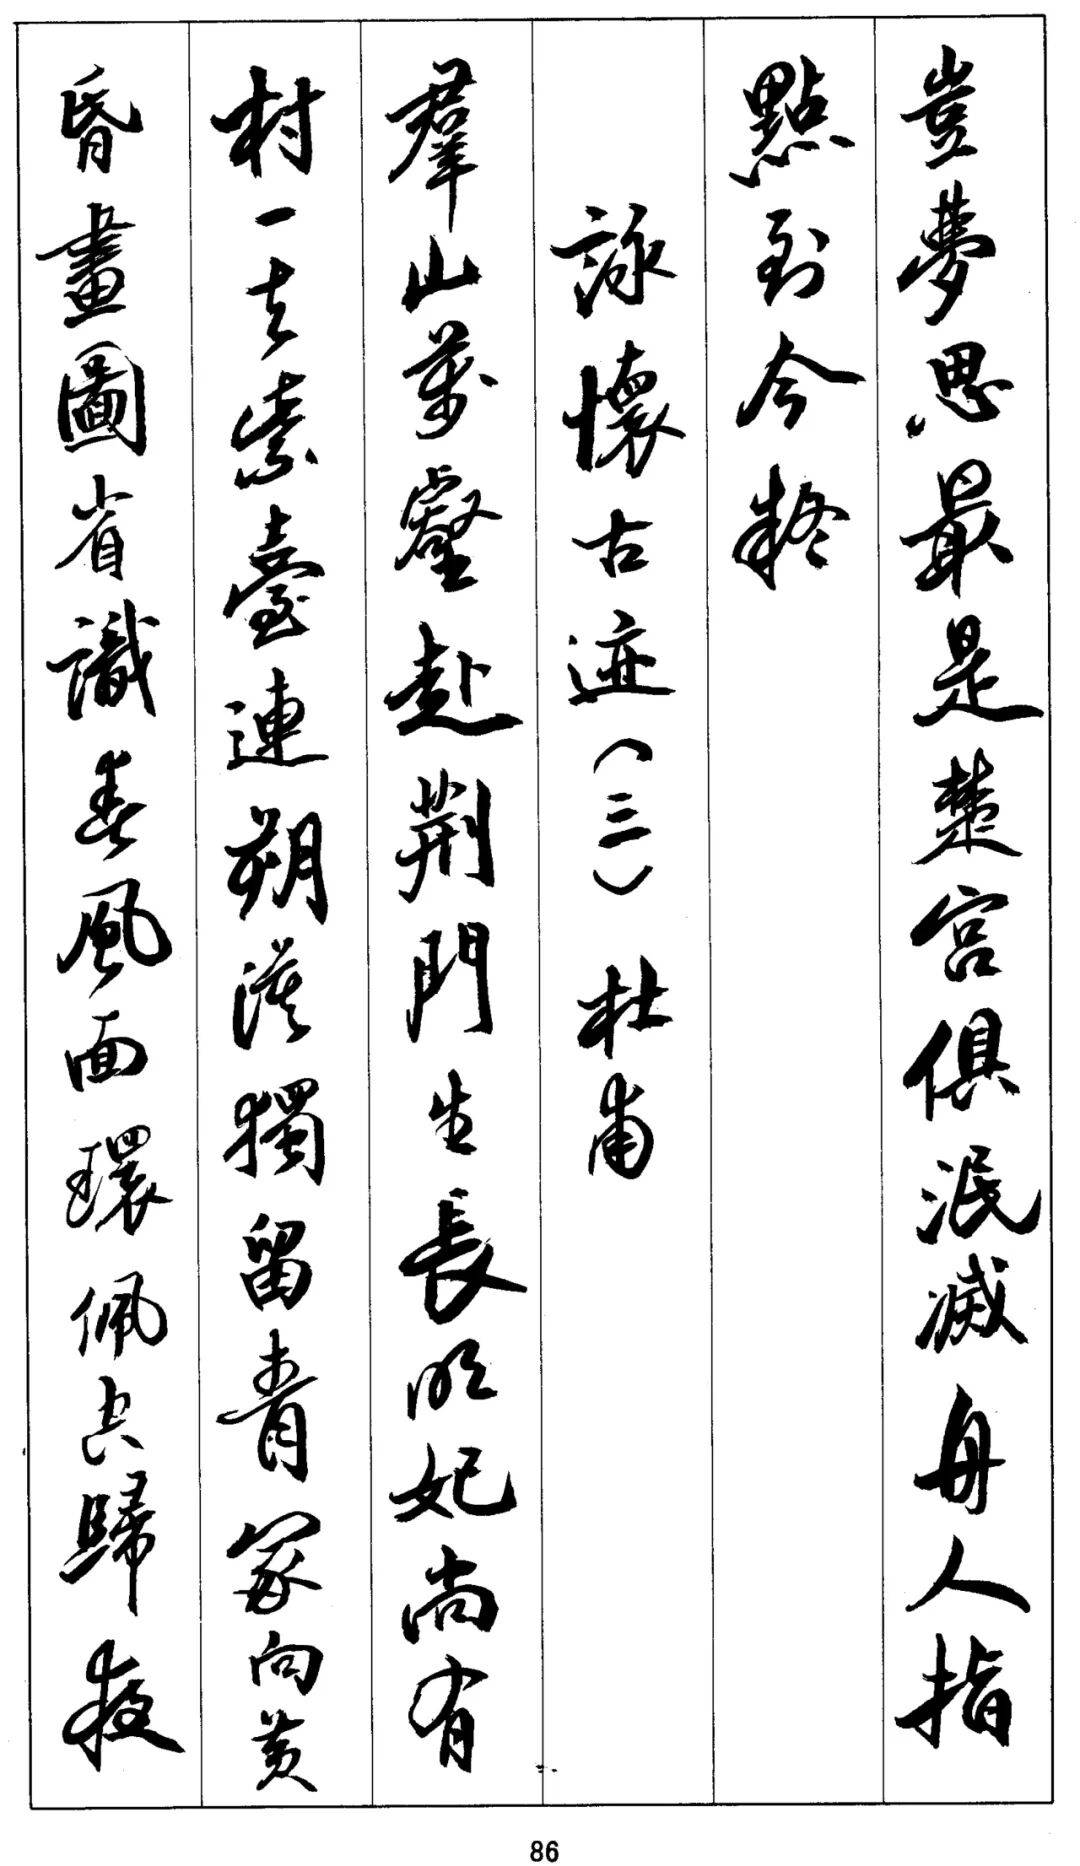 豈夢思最是楚宮俱泯滅舟人指
點到今疑
詠懷古迹（三）杜甫
羣山萬壑赴荆門生長明妃尚有
村一去紫臺連朔漠獨留青冢向黄
昏畫圖省識春風面環佩空歸夜
86